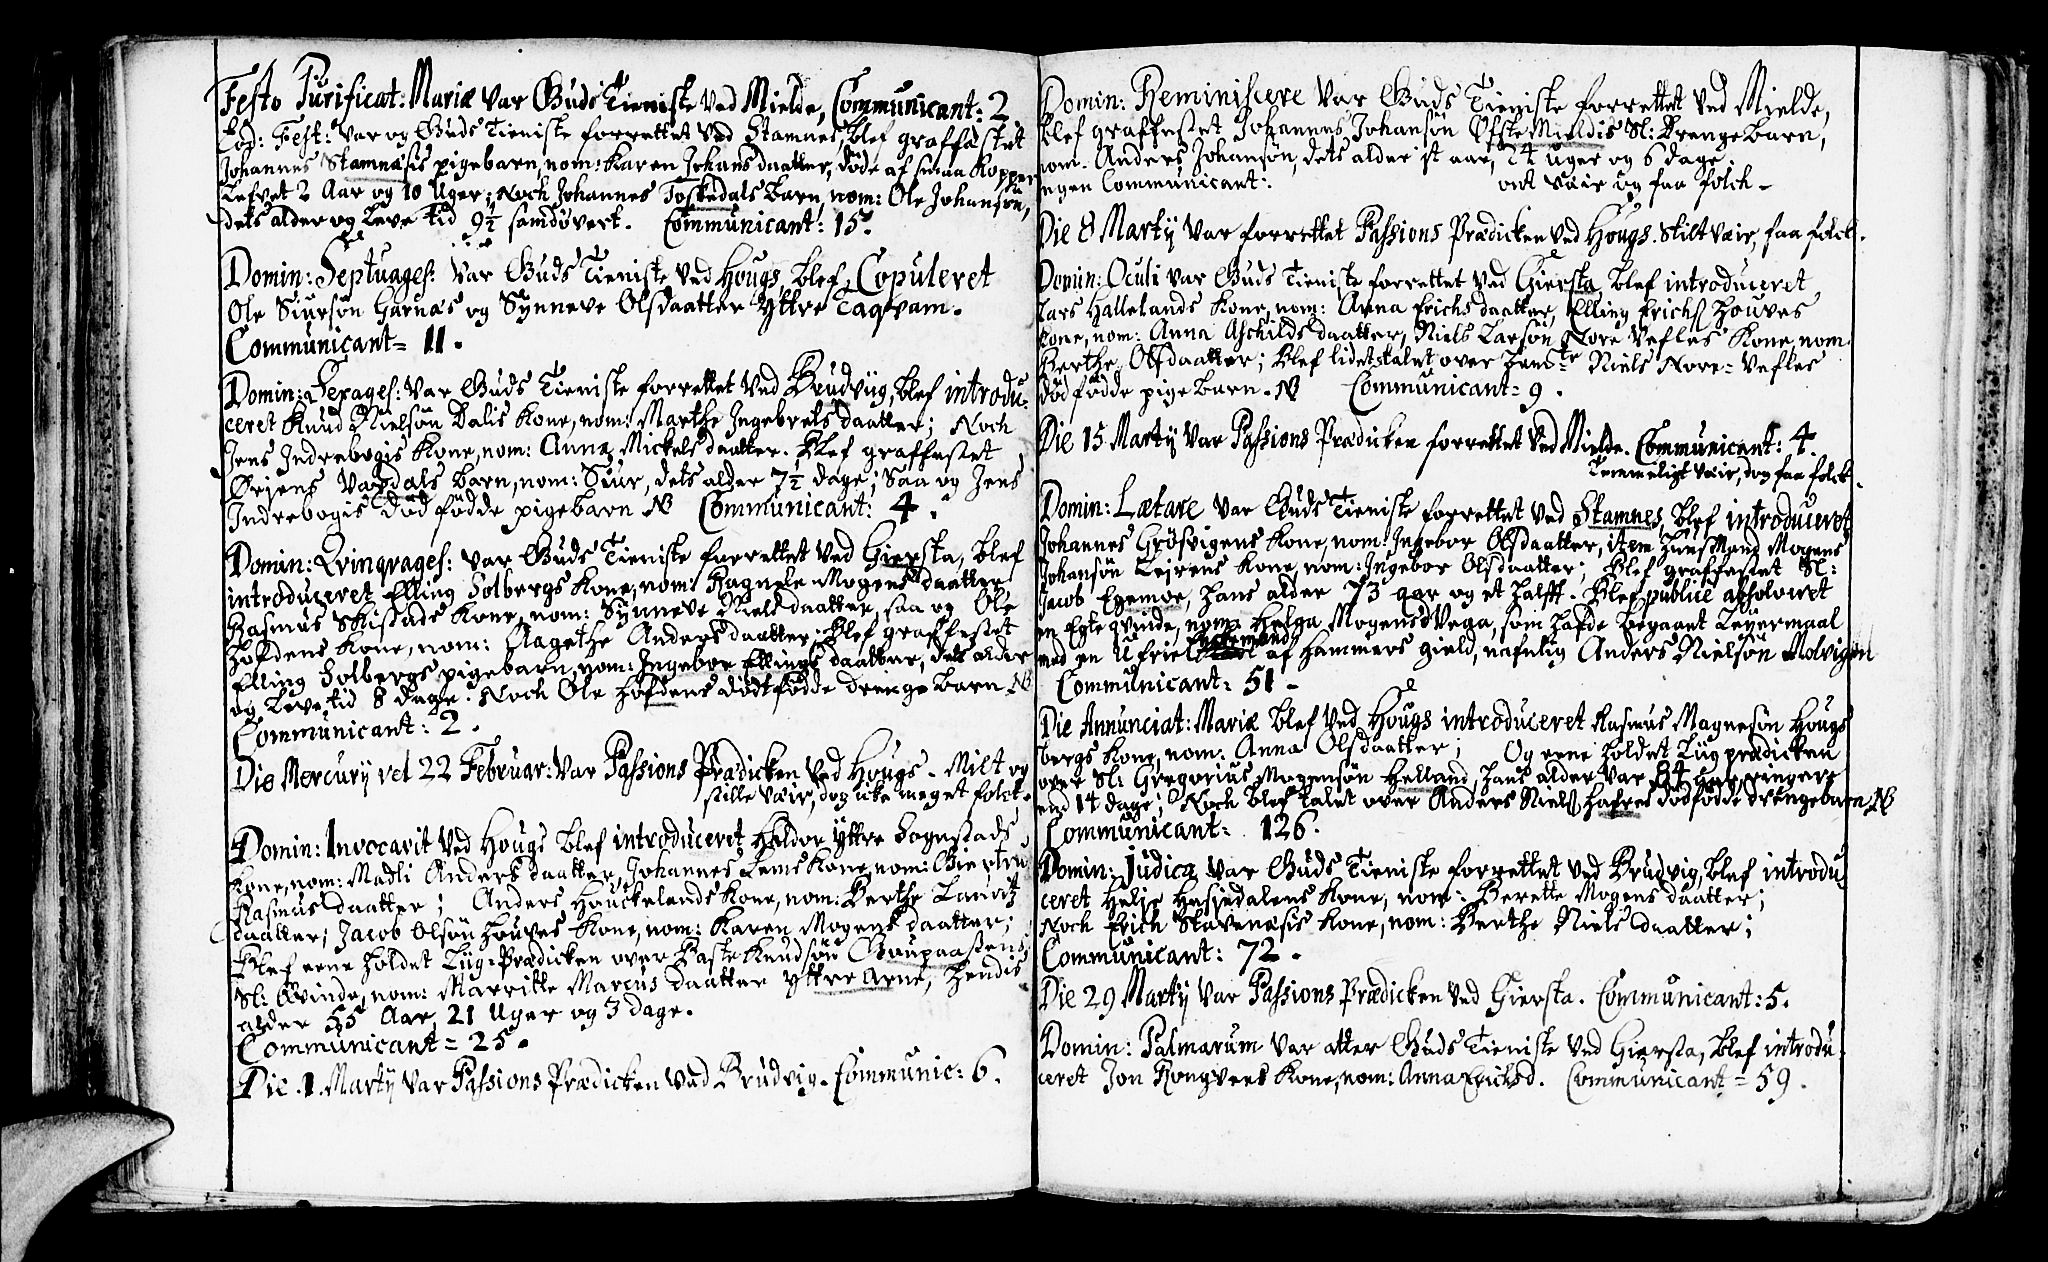 Festo Purificat: Mariæ var Guds Tieniste ved Mielde, Communicant: 2
Eod: Fest: var og Guds Tieniste forrettet ved Stamnes, blef graffæstet
Johannes Stamnæsis pigebarn, nom: Karen Johansdaatter, døde af smaa Kopper
Lefvet 2 Aar og 10 Uger; Noch Johannes Toskedals barn, nom: Ole Johansøn,
dets alder og Leve Tid 9½ samdøvert. Communicant: 15.
Domin: Septuages: var Guds Tieniste ved Hougs, blef Copuleret
Ole Siursøn Garnæs og Synneve Olsdaatter Yttre Taqvam.
Communicant= 11.
Domin: Sexages: var Guds Tieniste forrettet ved Brudviig, blef introdu-
ceret Knud Nielsøn Dalis Kone, nom: Marthe Ingebretsdaatter; Noch
Jens Indrebogis Kone, nom: Anna Mickelsdaatter. Blef graffæstet
Ørjens Vaxdals barn, nom: Siur, dets alder 7½ dage; Saa og Jens
Indrebogis dødfødde pigebarn NB Communicant: 4.
Domin: Qvinqvages: var Guds Tieniste forrettet ved Giersta, blef
introduceret Elling Solbergs Kone, nom: Ragnele Mogensdaatter
Rasmus Skistads Kone, nom: Synneve Nielsdaatter, saa og Ole
Hofdens Kone, nom: Aagethe Andersdaatter; Blef graffæstet
Elling Solbergs pigebarn, nom: Ingebor Ellingsdaatter, dets alder
og Leve tid 8 dage. Noch Ole Hofdens dødfødde drenge barn NB
Communicant: 2.
Die Mercurij vel 22 Februar: var Passions Prædicken ved Hougs. Milt og
stille væir, dog icke meget folck.
Domin: Invocavit ved Hougs blef introduceret Haldor Yttre Sognstads
Kone, nom: Madli Andersdaatter, Johannes Lems Kone, nom: Giertru
Rasmusdaatter; Anders Houckelands Kone, nom: Berthe Lauritz
daatter; Jacob Olsøn Houves Kone, nom: Karen Mogensdaatter;
Blef eene holdet Liig-Prædicken over Baste Knudsøn Goupaasens
Sl: Qvinde, nom: Marritte Marcusdaatter Yttre Arne, hendis
alder 55 Aar 21 Uger og 3 dage.
Communicant= 25.
Die 1 Martij var Passions Prædicken ved Brudvig. Communic: 6.
Domin: Reminiscere var Guds Tieniste forrettet ved Mielde,
blef graffæstet Johannes Johansøn Øfste Mieldis Sl: Drengebarn,
nom. Anders Johansøn, dets alder it aar, 24 uger og 6 dage.
ngen Communicant: ont væir og faa folck.
Die 8 Martij var forrettet Passions Prædicken ved Hougs. Stilt væir, faa folck.
Domin: Oculi var Guds Tieniste forrettet ved Giersta, blef introduceret
Lars Hallelands Kone, nom: Anna Erichsdaatter, Elling Erichs Houves
Kone, nom: Anna Aschildsdaatter, Niels Larsøn Nore Vefles Kone, nom.
Berthe Olsdaatter; blef lidet talet over bem.te Niels Nore-Vefles
dødfødde pigebarn. NB Communicant= 9.
Die 15 Martij var Passions Prædicken forrettet ved Mielde. Communicant: 4.
Temmeligt væir, dog faa folck.
Domin: Lætare var Guds Tieniste forrettet ved Stamnes, blef introduceret
Johannes Grøsvigens Kone, nom: Ingebor Olsdaatter, item huusmand Mogens
Johansøn Leirens Kone, nom: Ingebor Olsdaatter; Blef graffæstet Sl:
Jacob Egemoe, hans alder 73 aar og et halft. Blef publice absolveret
en Egteqvinde, nom: Helga Mogensd Vega, som hafde begaaet Leyermaal
med en Ufrie Enckemand af Hammers gield, nafnlig Anders Nielsøn Molvigen
Communicant: 51.
Die Annunciat: Mariæ blef ved Hougs introduceret Rasmus Magnesøn Hougs
bergs Kone, nom: Anna Olsdaatter; Og eene holdet Liigprædicken
over Sl: Gregorius Mogensøn Helland, hans alder var 84 aar ringere
end 14 dage; Noch blef talet over Anders Niels Hafres dødfødde drengebarn NB
Communicant: 126.
Domin: Judica var Guds Tieniste forrettet ved Brudvig, blef introdu
ceret Helje Hesjedalens Kone, nom: Berette Mogensdaatter;
Noch Erich Stavenæsis Kone, nom: Berthe Nielsdaatter;
Communicant: 72.
Die 29 Martij var Passions Prædicken ved Giersta. Communicant: 5.
Domin: Palmarum var atter Guds Tieniste ved Giersta, blef introdu-
ceret Jon Rongvens Kone, nom: Anna Erichsd. Communicant= 59.